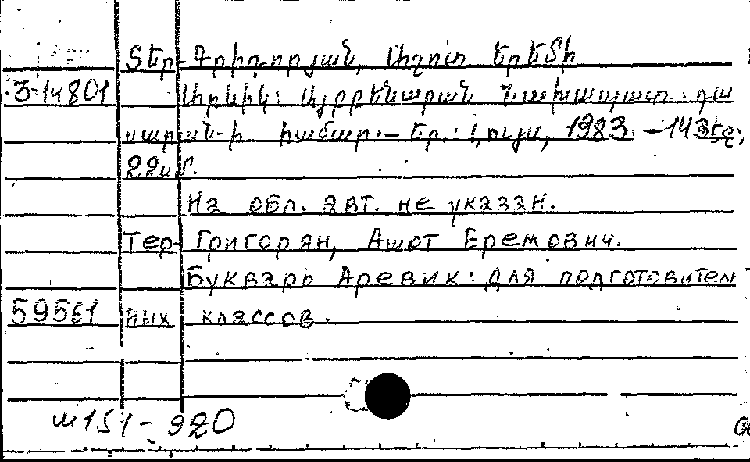 Տեր-Գրիգորյան, Աշոտ Երեմի
3-14801 Արևիկ: Այբբենարան նախապատ. դա
սարանի համար.- Եր.: Լույս, 1983. -143էջ;
22սմ.
На обл. авт. не указан.
Тер-Григорян, Ашот Еремович.
Букварь Аревик: для подготовител
59561 ных классов.
ա151-920